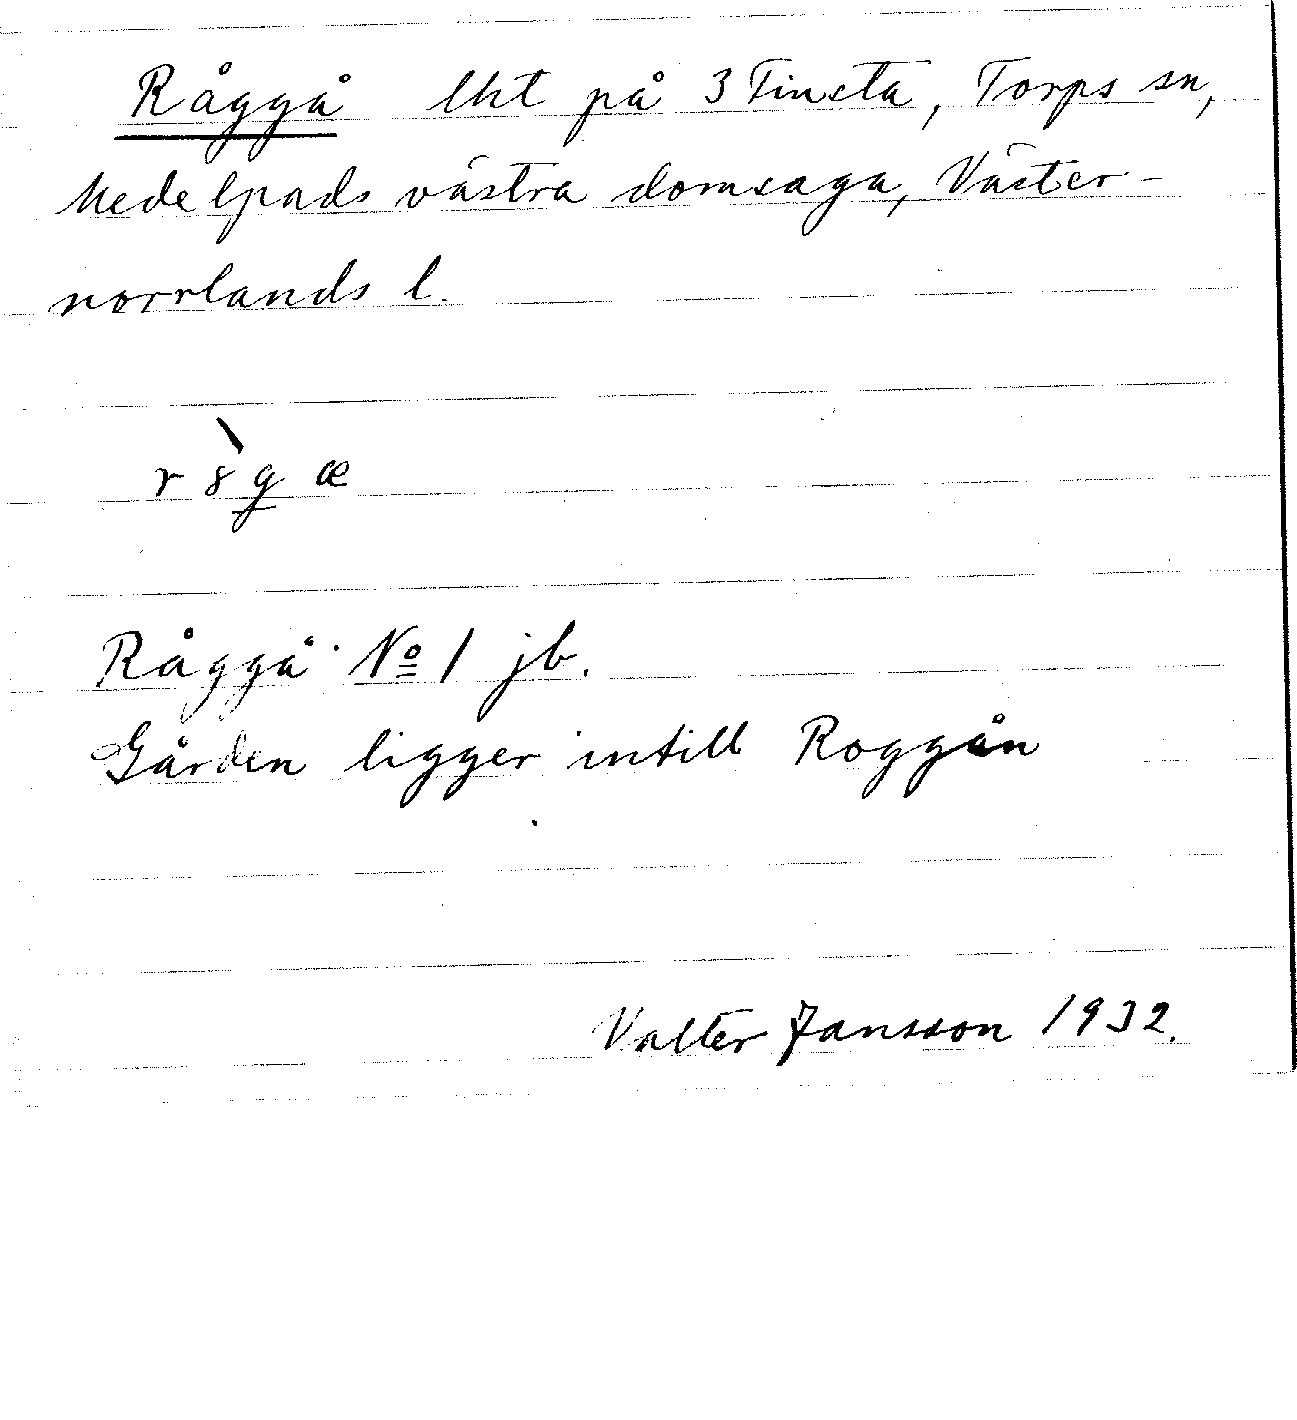 Råggå lht på 3 Finsta, Torps sn,
Medelpads västra domsaga, Väster-
norrlands l.
r8̀gæ
Råggå No 1 jb.
Gården ligger intill Roggån
Valter Jansson 1932.